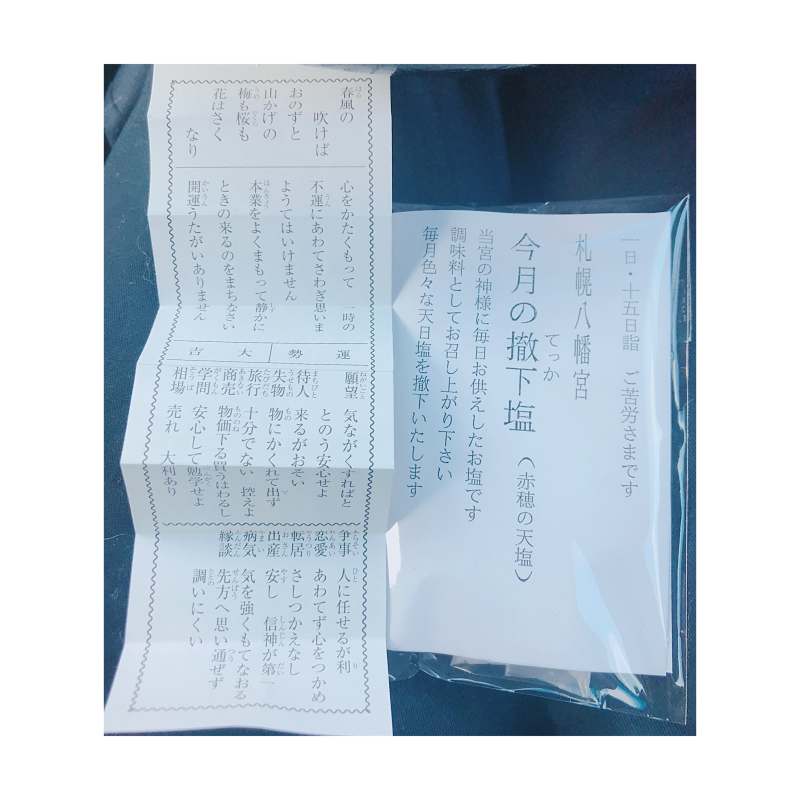 一日・十五日詣 ご苦労さまです
札幌八幡宮
今月の撤下塩 (赤穂の天塩)
てっか
当宮の神様に毎日お供えしたお塩です
調味料としてお召し上がり下さい
毎月色々な天日塩を撤下いたします
春風の
吹けば
おのずと
山かげの
梅も桜も
花はさく
なり
心をかたくもって 一時の
不運にあわてさわぎ思いま
ようてはいけません
本業をよくまもって静かに
ときの来るのをまちなさい
開運うたがいありません
運勢 大吉
願望 気ながくすればと
とのう安心せよ
待人 来るがおそい
失物 物にかくれて出ず
旅行 十分でない 控えよ
商売 物価下る買うはわるし
学問 安心して勉学せよ
相場 売れ 大利あり
争事 人に任せるが利
恋愛 あわてず心をつかめ
転居 さしつかえなし
出産 安し 信神が第一
病気 気を強くもてなおる
縁談 先方へ思い通ぜず
調いにくい